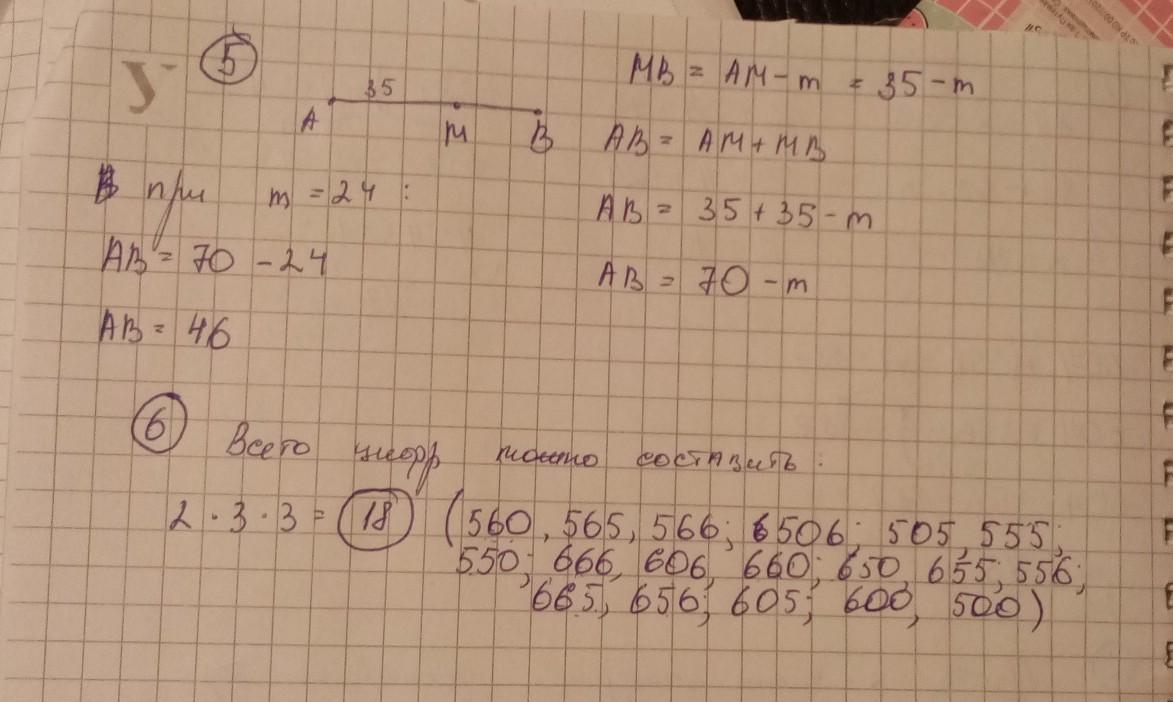 5
35
A M B
MB = AM - m = 35 - m
AB = AM + MB
AB = 35 + 35 - m
AB = 70 - m
при m = 24 :
AB = 70 - 24
AB = 46
6
Всего цифр можно составить :
2 · 3 · 3 = 18 (560, 565, 566; 506; 505, 555;
550; 666, 606, 660; 650, 655; 556;
665, 656; 605; 600, 500)